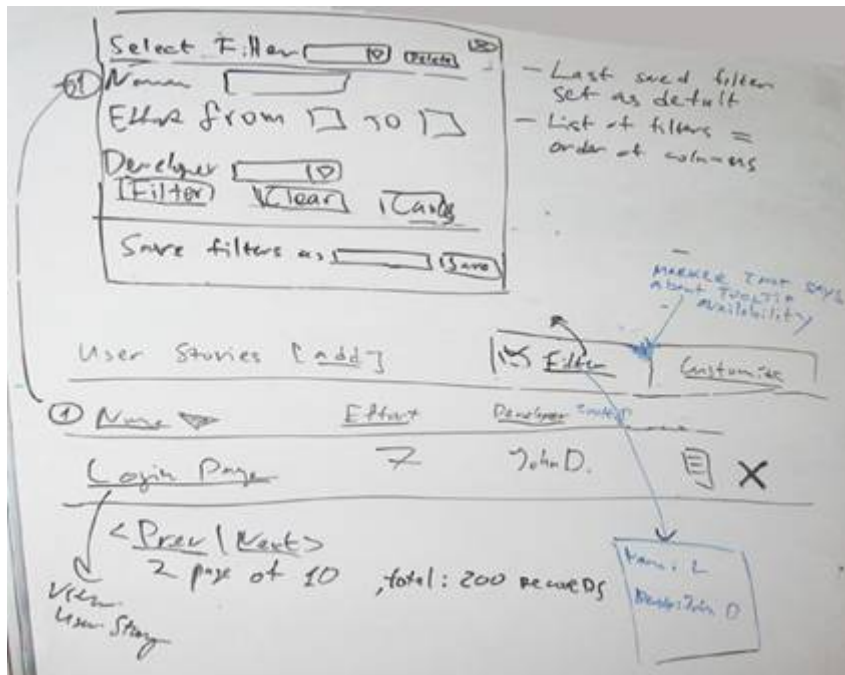 Select Filter Delete
Name
Effort from to
Developer
Filter Clear
Save filters as Save
- Last saved filter
set as default
- List of filters =
order of columns
MARKER THAT SAYS
about TOOLTIP
availability
User Stories [add] Filter Customize
1 Name Effort Developer
Login Page 7 John D.
<Prev | Next>
2 page of 10 , total: 200 RECORDS
View
User Story
Name: L